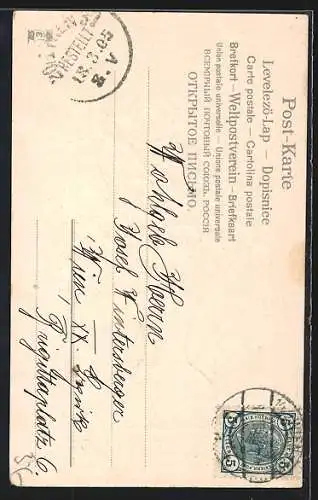 Post-Karte
Levelezö-Lap — Dopisnice
Carte postale — Cartolina postale
Brefkort — Weltpostverein — Briefkaart
Union postale universelle — Unione postale universale
ВСЕМІРНЫЙ ПОЧТОВЫЙ СОЮЗЪ, РОССІЯ
ОТКРЫТОЕ ПИСЬМО.
BESTELLT
13.3.05
Wohlgeb Herrn
Josef Wintersberger
Wien XX. Bezirk
Brigittaplatz 6.
5 5